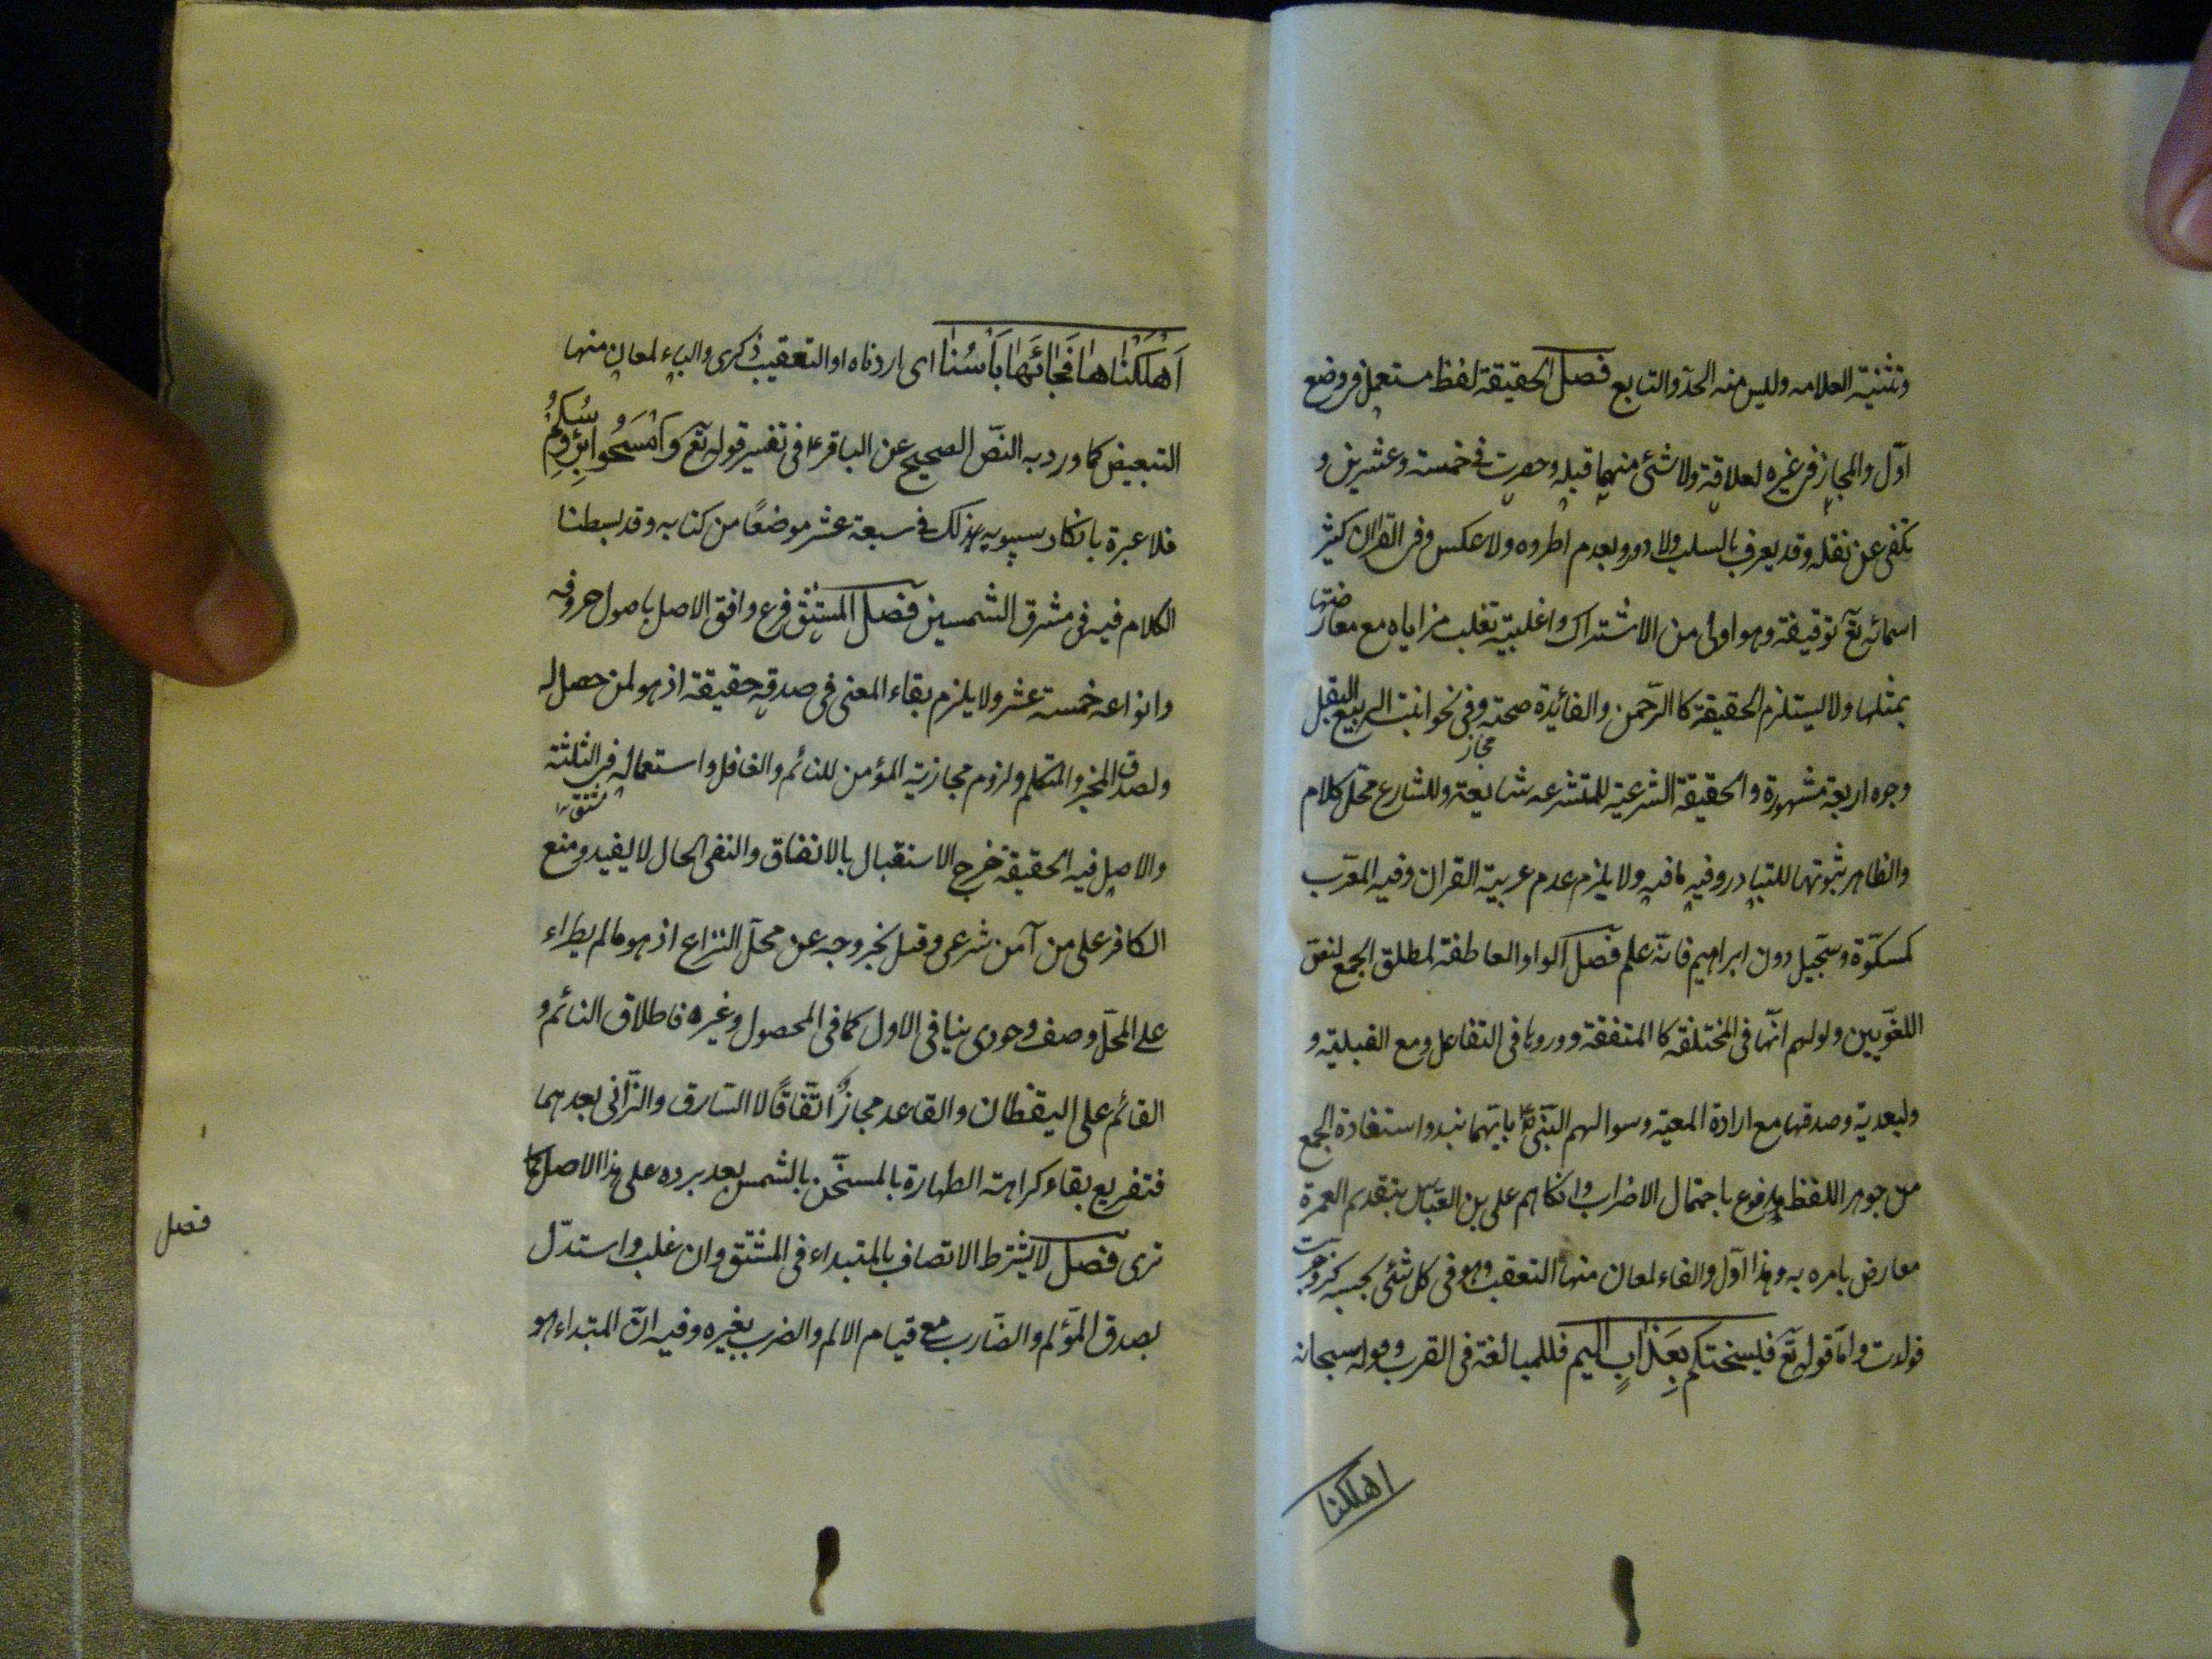 وتثنية العلامه وليس منه الحذ والتابع فصل الحقيقة لفظ مستعمل فى وضع
اوّل والمجاز فى غيره لعلاقة ولا شئ منهما قبله وحصرت فى خمسته وعشرين و
تكفى عن نقله وقد يعرف بالسلب ولا دور وبعدم اطروه ولا عكس وفى القران كثير
اسمائه تع توقيفة وهو اولى من الاشتراك واغلبيّته تغلب مزاياه مع معارضتها
بمثلها ولا يستلزم الحقيقة كالرّحمن والفائدة صحته وفى نحو انبت الربيع البقل مجاز
وجوه اربعة مشهورة والحقيقة الشرعيّة للمتشرعه شايعة وللشارع محل كلام
والظاهر ثبوتها للتبادر وفيه مافيه ولا يلزم عدم عربية القران وفيه المعرّب
كمسكوّة وسجّيل دون ابراهيم فانّه علم فصل الواو العاطفة لمطلق الجمع لنصّ
اللغوّيين ولولهم انّها فى المختلفة كالمتفقة وورودها فى التفاعل ومع القبليّة و
ولبعدية وصدقها مع ارادة المعيّة وسوالهم النبّى ص بايّهما نبدو استفادة الجمع
من جوهر اللفظ مدفوع باحتمال الاضراب وانكارهم على بن العبّاس بتقديم العمرة
معارض بامره به وهذا اوّل والفاء لمعان منها التعقيب وهو فى كل شئى بحسبه كتزوجت
فولدت وامّا قوله تع فليسختكم بِعَذابٍ اليم فللمبالغة فى القرب وقوله سبحانه
اهلكنا
اَهْلَكْنٰاهٰا فَجٰائَهٰا بَأْسُنٰا اى اردناه او التعقيب ذكرى والباء لمعان منها
التبعيض كما ورد به النصّ الصحيح عن الباقر ع فى تفسير قوله تع وَامْسَحُوا بِرُؤُسِكُمْ
فلا عبرة بانكار سيبويه لذلك فى سبعة عشر موضعًا من كتابه وقد بسطنا
الكلام فيه فى مشرق الشمسين فصل المشتق فرع وافق الاصل باصول حروفه
وانواعه خمسته عشر ولا يلزم بقاء المعنى فى صدقه حقيقة اذ هو لمن حصل له
ولصدق المخبر والمتكلم ولزوم مجازيّة المؤمن للنائم والغافل واستعماله فى الثلثة
والاصل فيه الحقيقة خرج الاستقبال بالاتفاق والنفى الحال لا يفيد ومنع مشتق
الكافر على من آمن شرعى وقيل بخروجه عن محلّ النزاع اذ هو مالم يطراء
على المحلّ وصف وجودى ينافى الاول كما فى المحصول وغيره فاطلاق النائم و
القائم على اليقظان والقاعد مجازٌ اتّفاقًا لا السّارق والزّانى بعدهما
فتفريع بقاء كراهة الطهارة بالمسخّن بالشمس بعد برده على هذا الاصل كما
ترى فصل لا يشترط الاتصاف بالمبداء فى المشتق وان غلب واستدلّ
بصدق المؤلم والضّارب مع قيام الالم والضرب بغيره وفيه انّ المبداء هو
فصل